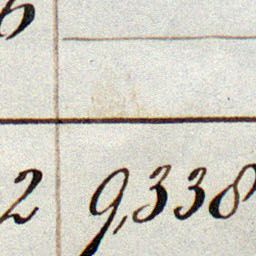 6
2 9,338